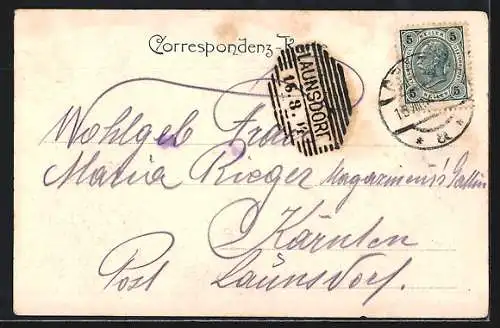 Correspondenz-Karte
5 5
5 HELLER 5
LAUNSDORF
16.8.
Wohlgeb Frau
Maria Rieger Magazineur's Gattin
Kärnten
Post Launsdorf.